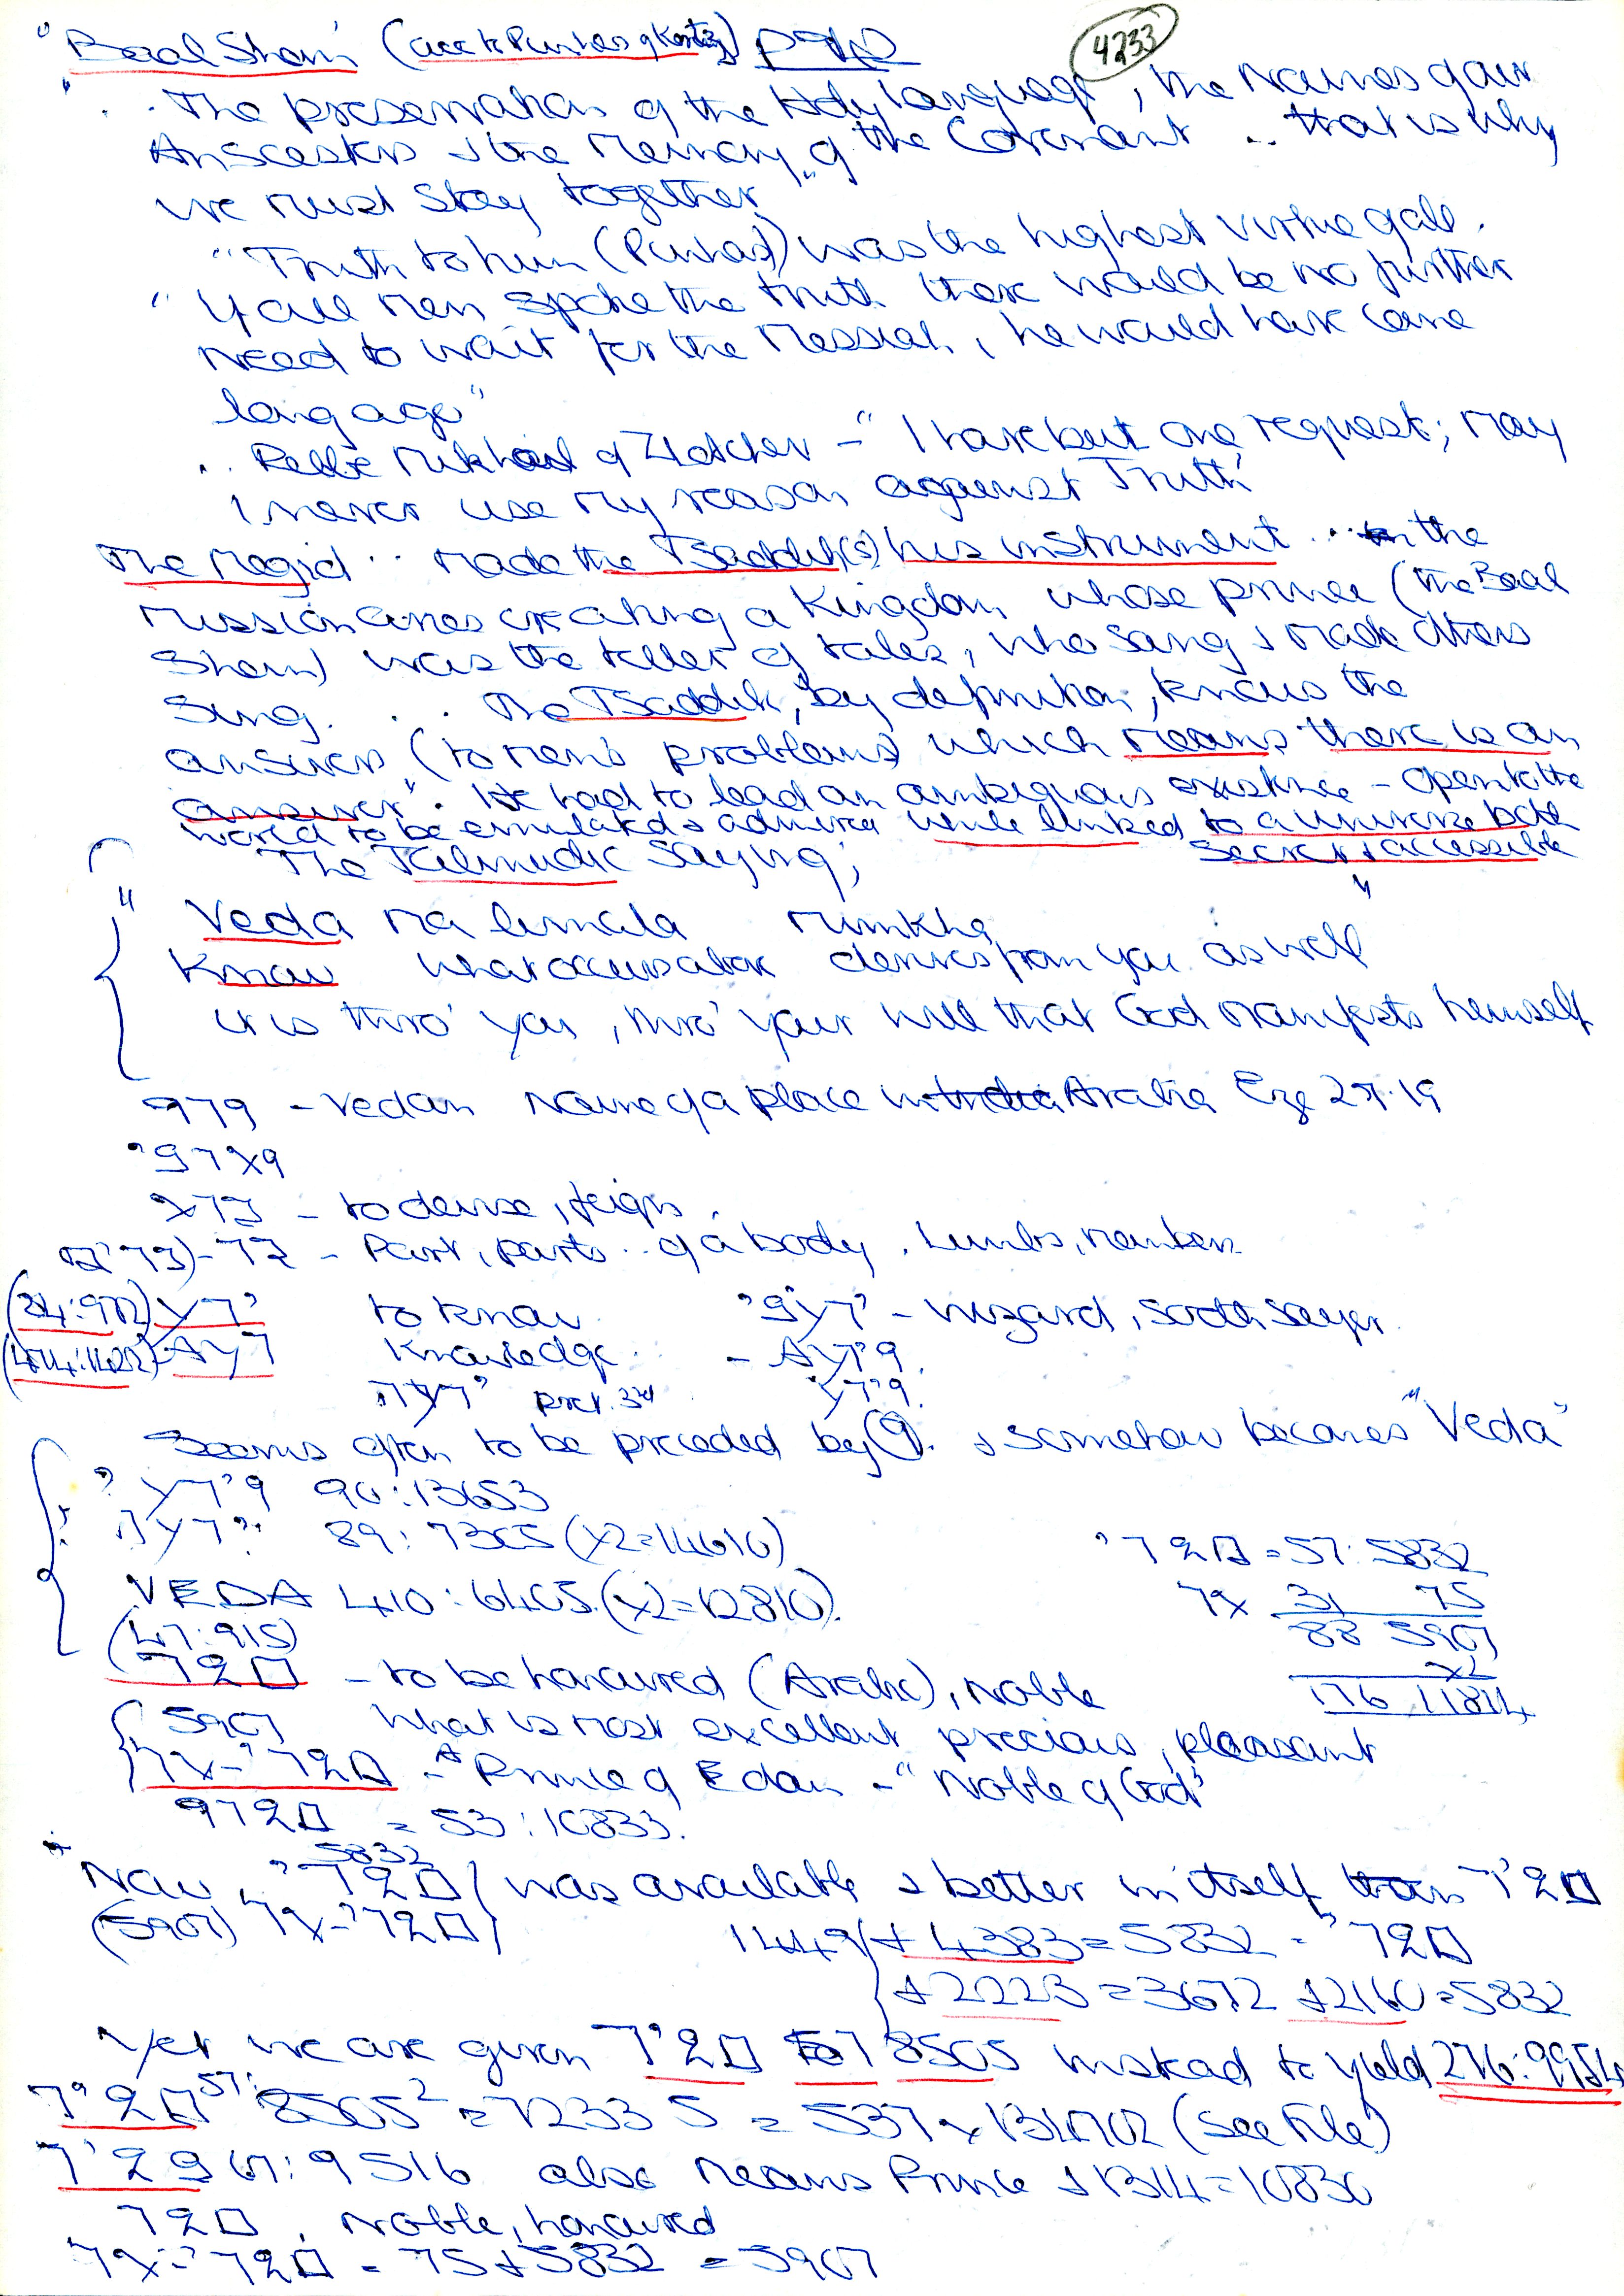 "Baal Shem" (acc to Pinhas of Koretz)
4233
". . The preservation of the Holy Language, the Names of our
Anscestors & the Memory of the Covenant .. that is why
we must stay together"
"Truth to him (Pinhas) was the highest virtue of all.
"If all men spoke the truth there would be no further
need to wait for the Messiah, he would have come
long ago"
.. Rebbe Mikhael of Zlotchev - "I have but one request; may
I never use my reason against Truth
The Magid .. made the Tsaddik(s) his instrument ... the
missionaries creating a Kingdom whose prince (the Baal
Shem) was the teller of tales, who sang & made others
sing. . . The Tsaddik, by definition, knows the
answers (to men's problems) which means there is an
answer". He had to lead an ambiguous existence - open to the
world to be emulated & admired while linked to a universe both
secret & accessible"
The Talmudic saying;
" Veda ma lemala mimkha
Know what occurs above derives from you as well
it is thro' you, thro' your will that God manifests himself
- Vedan Name of a place in Arabia Eze 27.19
- to devise, feign.
- Part, parts .. of a body. Limbs, members
to know - wizard, soothsayer
Knowledge.
pret. 3rd
Seems often to be preceded by & somehow becomes "Veda"
90:13653
89:7305 (x2=14610)
VEDA 410:6405 (x2=12810)
(47:915)
= 57:5832
31 75
88 5907
x2
176 11814
- to be honoured (Arabic), noble
5907 what is most excellent precious, pleasant
- A Prince of Edom - "Noble of God"
= 53:10833.
5832
Now, was available & better in itself than
(5907)
1449 + 4383 = 5832 -
+ 2223 = 3672 + 2160 = 5832
Yet we are given 8505 instead to yield 276:9954
57: 8505² = 72335 = 537 x 134702 (see File)
67:9516 also means Prince + 1314 = 10830
, Noble, honoured
= 75 + 5832 = 5907